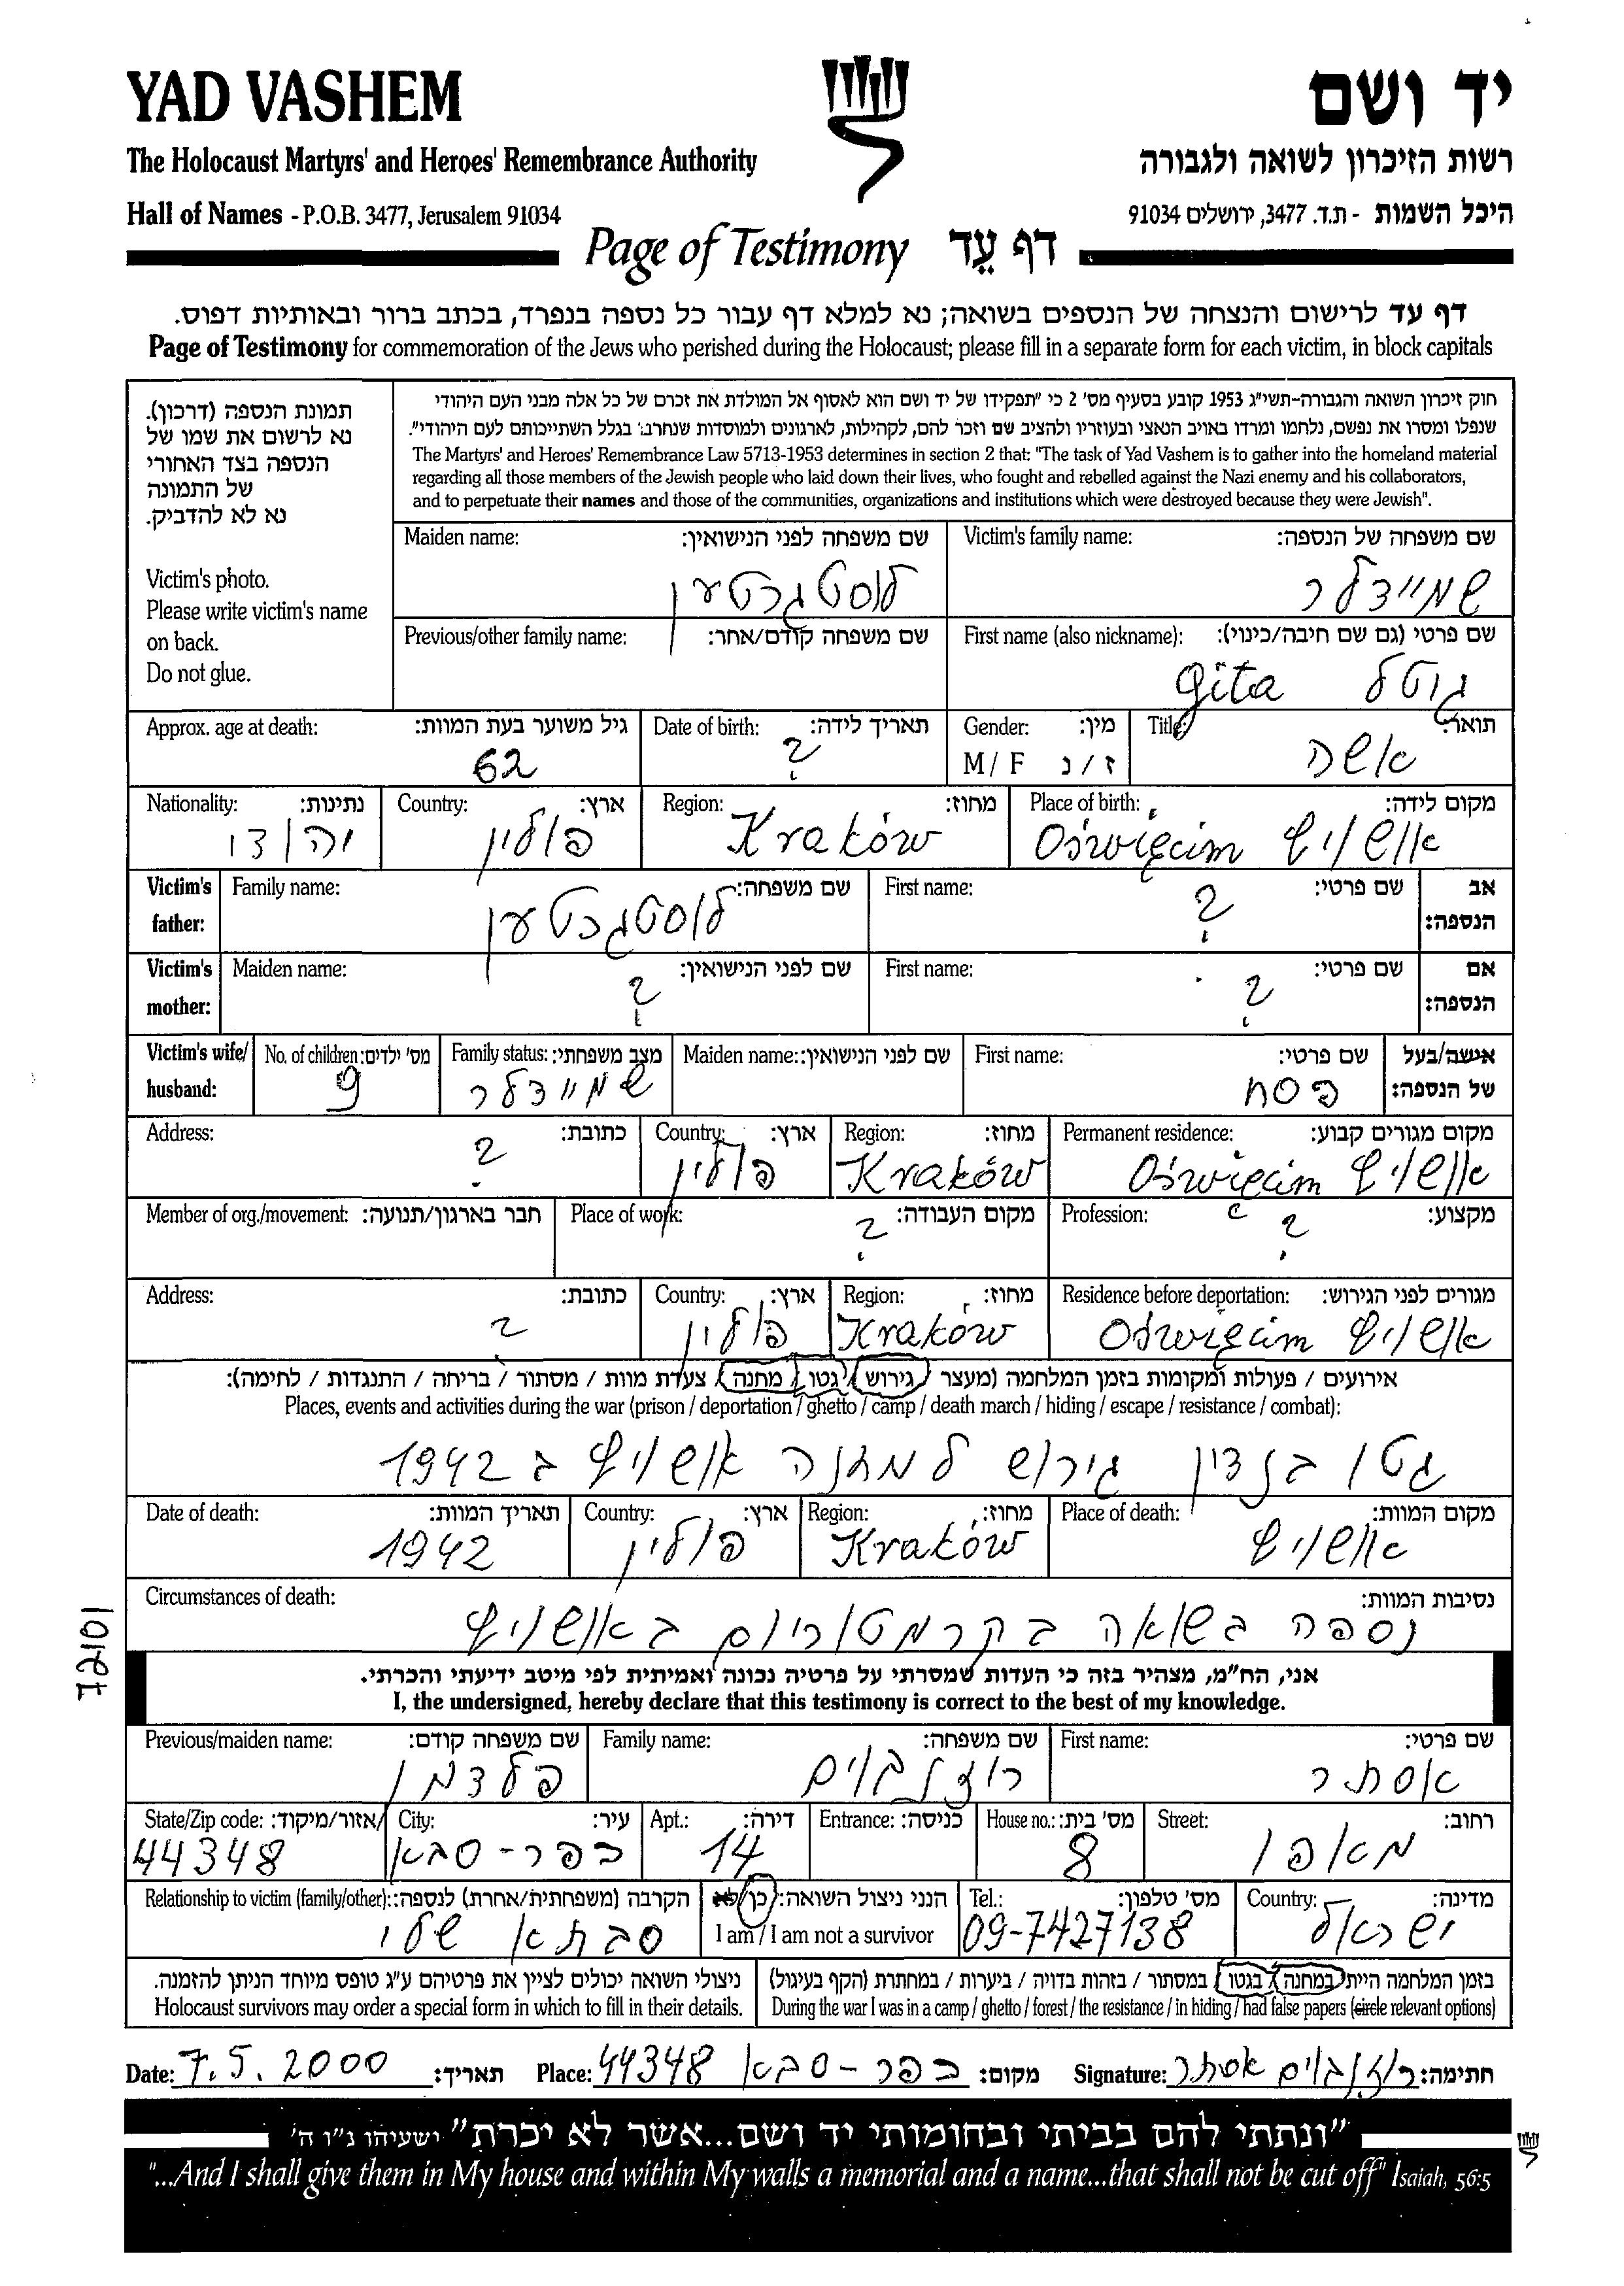 YAD VASHEM
יד ושם
The Holocaust Martyrs' and Heroes' Remembrance Authority
רשות הזיכרון לשואה ולגבורה
Hall of Names - P.O.B. 3477, Jerusalem 91034
היכל השמות - ת.ד. 3477, ירושלים 91034
Page of Testimony דף עֵד
דף עד לרישום והנצחה של הנספים בשואה; נא למלא דף עבור כל נספה בנפרד, בכתב ברור ובאותיות דפוס.
Page of Testimony for commemoration of the Jews who perished during the Holocaust; please fill in a separate form for each victim, in block capitals
תמונת הנספה (דרכון).
נא לרשום את שמו של
הנספה בצד האחורי
של התמונה
נא לא להדביק.
Victim's photo.
Please write victim's name
on back.
Do not glue.
חוק זיכרון השואה והגבורה-תשי"ג 1953 קובע בסעיף מס' 2 כי "תפקידו של יד ושם הוא לאסוף אל המולדת את זכרם של כל אלה מבני העם היהודי
שנפלו ומסרו את נפשם, נלחמו ומרדו באויב הנאצי ובעוזריו ולהציב שם וזכר להם, לקהילות, לארגונים ולמוסדות שנחרבו בגלל השתייכותם לעם היהודי".
The Martyrs' and Heroes' Remembrance Law 5713-1953 determines in section 2 that: "The task of Yad Vashem is to gather into the homeland material
regarding all those members of the Jewish people who laid down their lives, who fought and rebelled against the Nazi enemy and his collaborators,
and to perpetuate their names and those of the communities, organizations and institutions which were destroyed because they were Jewish".
Victim's family name: שם משפחה של הנספה:
שמיידלר
Maiden name: שם משפחה לפני הנישואין:
לוסטגרטען
First name (also nickname): שם פרטי (גם שם חיבה/כינוי):
גיטל Gita
Previous/other family name: שם משפחה קודם/אחר:
Title: תואר:
אשה
Gender: מין:
M / F ז / נ
Date of birth: תאריך לידה:
?
Approx. age at death: גיל משוער בעת המוות:
62
Place of birth: מקום לידה:
אושויץ Oświęcim
Region: מחוז:
Kraków
Country: ארץ:
פולין
Nationality: נתינות:
יהודי
Victim's father: אב הנספה:
First name: שם פרטי:
?
Family name: שם משפחה:
לוסטגרטען
Victim's mother: אם הנספה:
First name: שם פרטי:
?
Maiden name: שם לפני הנישואין:
?
Victim's wife/ husband: אישה/בעל של הנספה:
First name: שם פרטי:
פסח
Maiden name: שם לפני הנישואין:
Family status: מצב משפחתי:
שמיידלר
No. of children: מס' ילדים:
9
Permanent residence: מקום מגורים קבוע:
אושויץ Oświęcim
Region: מחוז:
Kraków
Country: ארץ:
פולין
Address: כתובת:
?
Profession: מקצוע:
?
Place of work: מקום העבודה:
?
Member of org./movement: חבר בארגון/תנועה:
Residence before deportation: מגורים לפני הגירוש:
אושויץ Oświęcim
Region: מחוז:
Kraków
Country: ארץ:
פולין
Address: כתובת:
?
אירועים / פעולות ומקומות בזמן המלחמה (מעצר / גירוש / גטו / מחנה / צעדת מוות / מסתור / בריחה / התנגדות / לחימה):
Places, events and activities during the war (prison / deportation / ghetto / camp / death march / hiding / escape / resistance / combat):
גטו בנדין גירוש למחנה אושויץ ב 1942
Place of death: מקום המוות:
אושויץ
Region: מחוז:
Kraków
Country: ארץ:
פולין
Date of death: תאריך המוות:
1942
Circumstances of death: נסיבות המוות:
נספה בשואה בקרמטוריום באושויץ
72101
אני, הח"מ, מצהיר בזה כי העדות שמסרתי על פרטיה נכונה ואמיתית לפי מיטב ידיעתי והכרתי.
I, the undersigned, hereby declare that this testimony is correct to the best of my knowledge.
First name: שם פרטי:
אסתר
Family name: שם משפחה:
רוזנבוים
Previous/maiden name: שם משפחה קודם:
פלדמן
Street: רחוב:
מאפו
House no.: מס' בית:
8
Entrance: כניסה:
Apt.: דירה:
14
City: עיר:
כפר-סבא
State/Zip code: אזור/מיקוד:
44348
Country: מדינה:
ישראל
Tel.: מס' טלפון:
09-7427138
הנני ניצול השואה: כן/לא
I am / I am not a survivor
Relationship to victim (family/other): הקרבה (משפחתית/אחרת) לנספה:
סבתא שלי
בזמן המלחמה הייתי במחנה / בגטו / במסתור / בזהות בדויה / ביערות / במחתרת (הקף בעיגול)
During the war I was in a camp / ghetto / forest / the resistance / in hiding / had false papers (circle relevant options)
ניצולי השואה יכולים לציין את פרטיהם ע"ג טופס מיוחד הניתן להזמנה.
Holocaust survivors may order a special form in which to fill in their details.
Date: 7.5.2000 תאריך: Place: 44348 כפר-סבא מקום: Signature: רוזנבוים אסתר חתימה:
"ונתתי להם בביתי ובחומותי יד ושם...אשר לא יכרת" ישעיהו נ"ו ה'
"...And I shall give them in My house and within My walls a memorial and a name...that shall not be cut off" Isaiah, 56:5